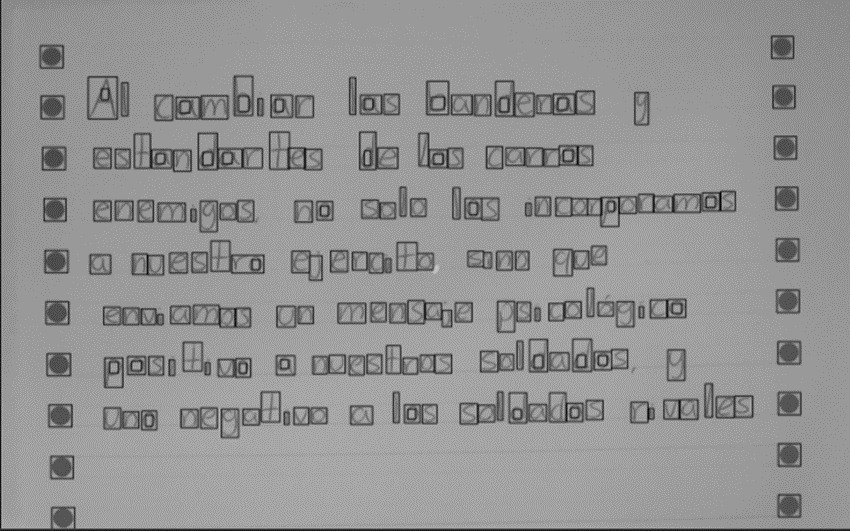 Al cambiar las banderas y
estandartes de los carros
enemigos, no solo los incorporamos
a nuestro ejercito, sino que
enviamos un mensaje psicológico
positivo a nuestros soldados, y
uno negativo a los soldados rivales